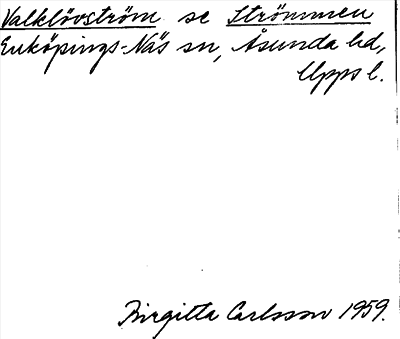 Valklövström se Strömmen
Enköpings-Näs sn, Åsunda hd,
Upps l.
Birgitta Carlsson 1959.